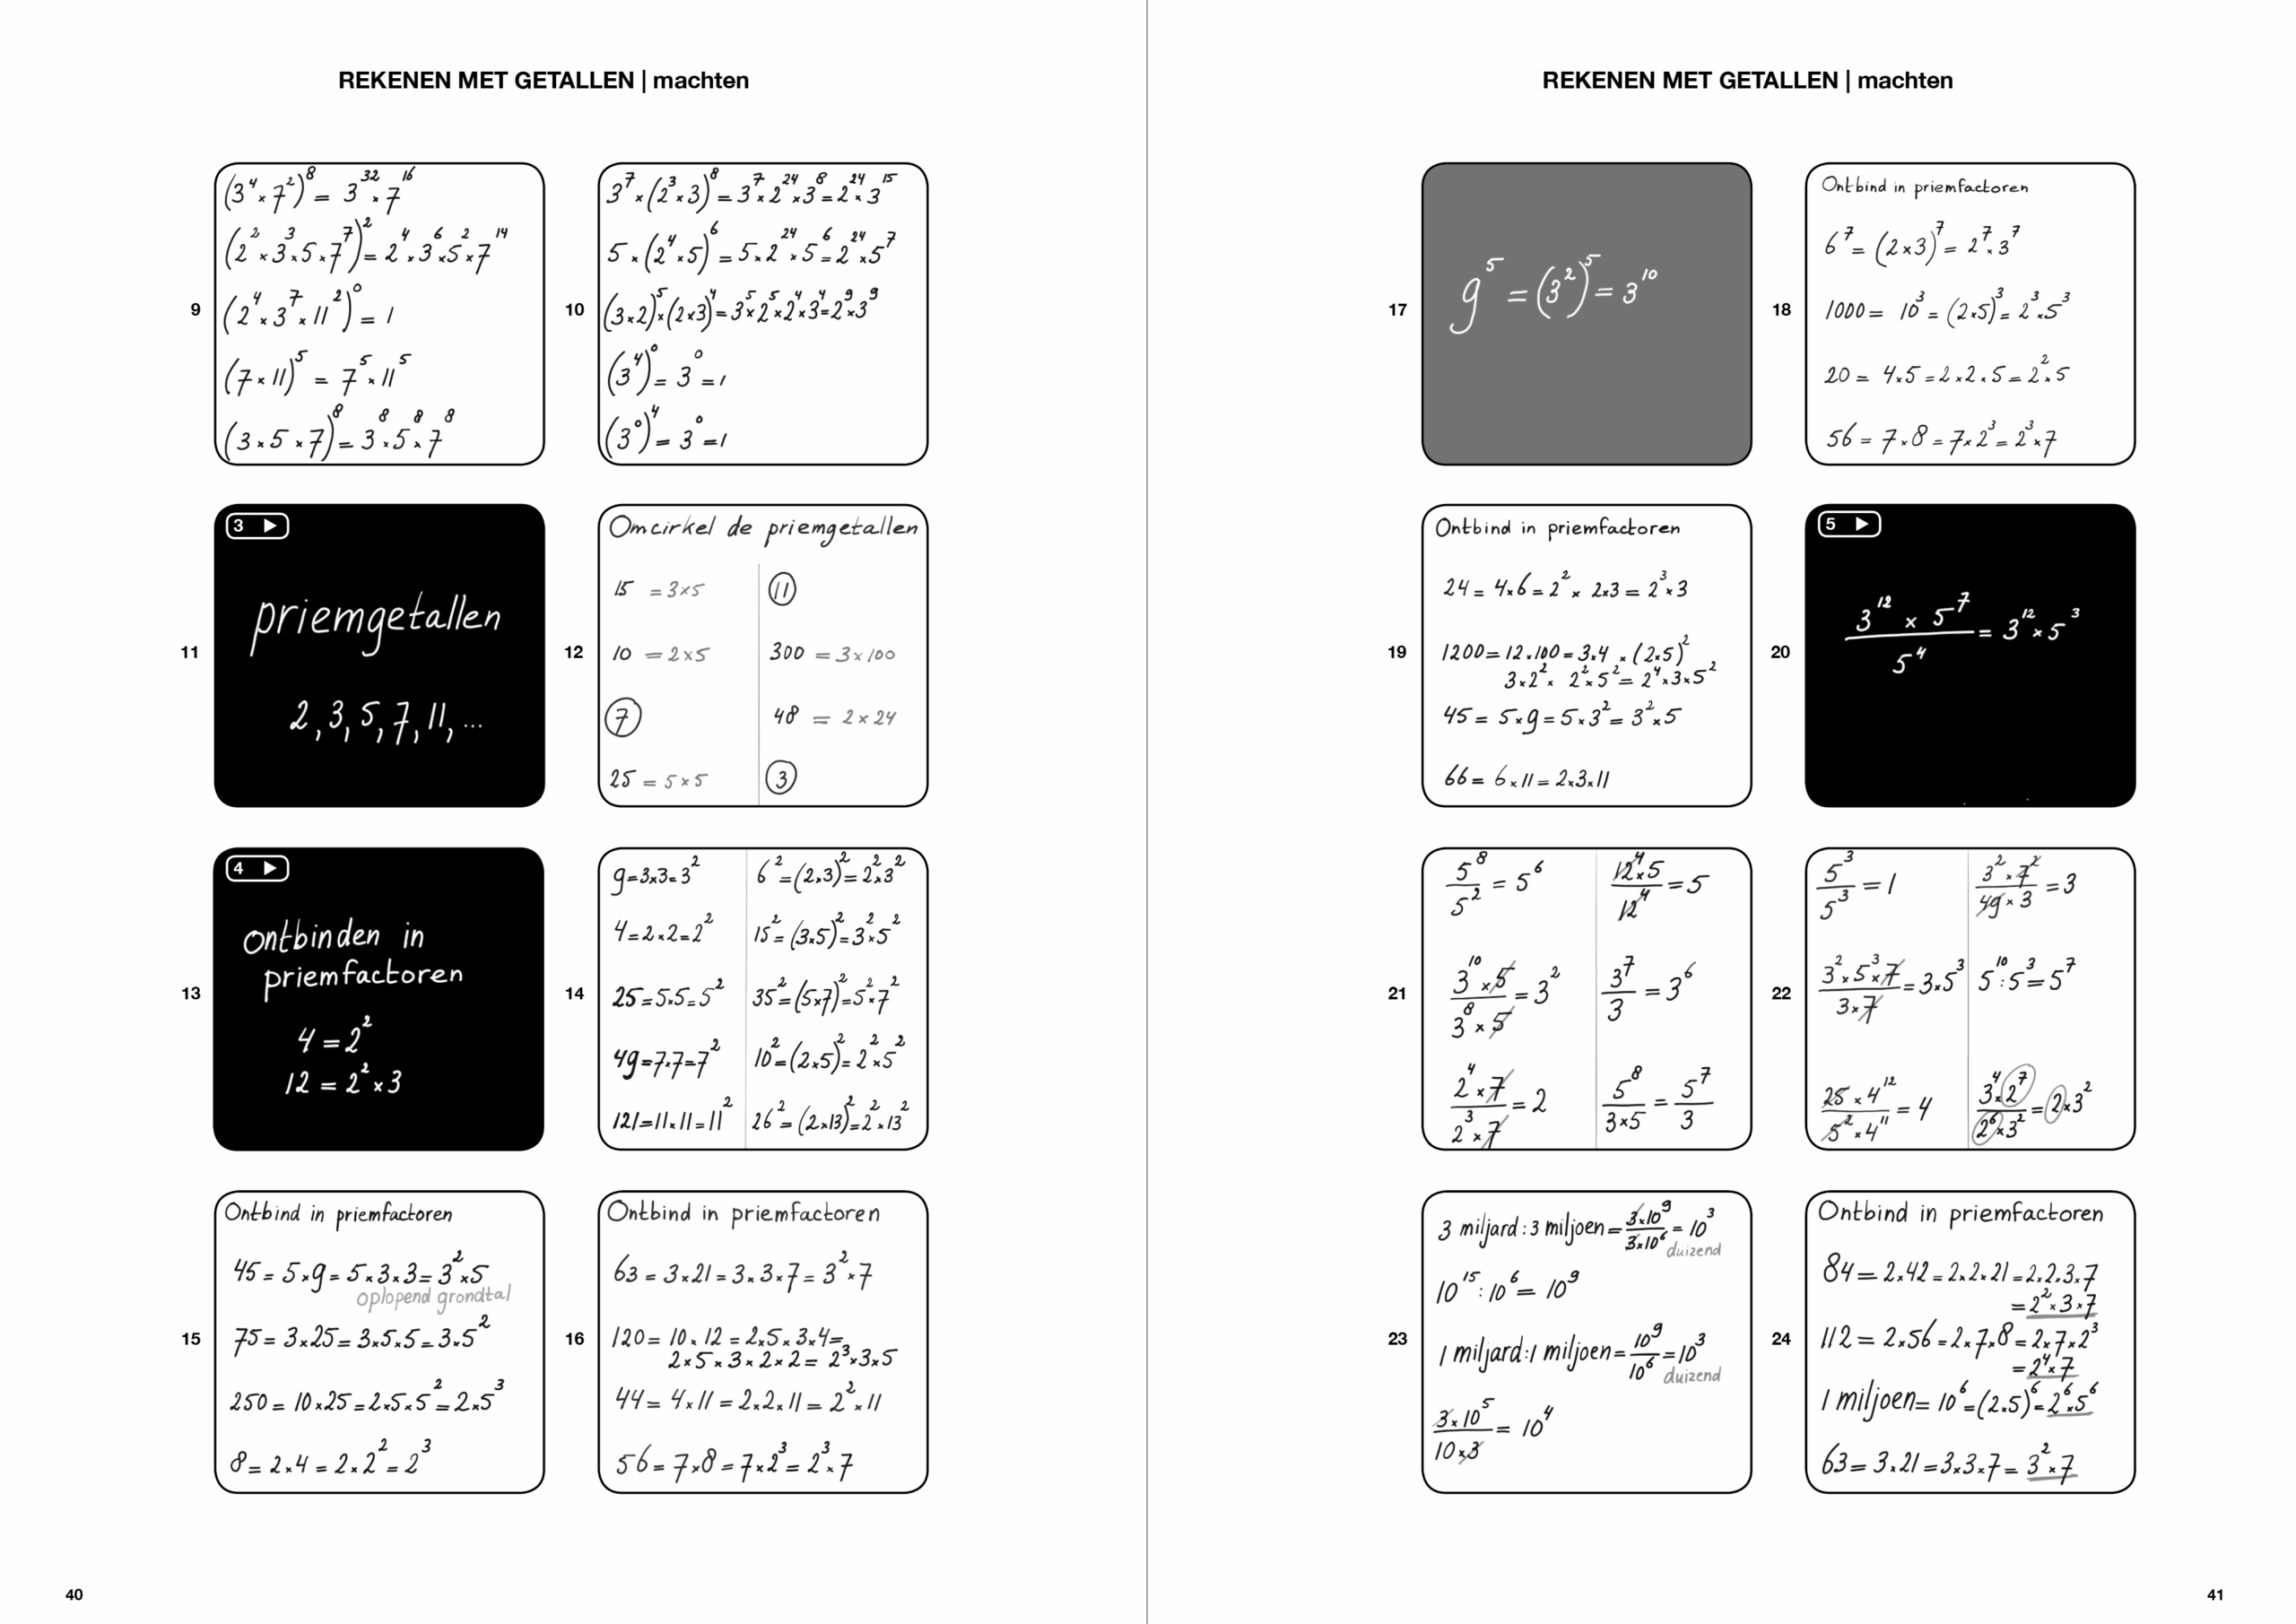 REKENEN MET GETALLEN | machten
9
(3⁴ × 7²)⁸ = 3³² × 7¹⁶
(2² × 3³ × 5 × 7⁷)² = 2⁴ × 3⁶ × 5² × 7¹⁴
(2⁴ × 3⁷ × 11²)⁰ = 1
(7 × 11)⁵ = 7⁵ × 11⁵
(3 × 5 × 7)⁸ = 3⁸ × 5⁸ × 7⁸
10
3⁷ × (2³ × 3)⁸ = 3⁷ × 2²⁴ × 3⁸ = 2²⁴ × 3¹⁵
5 × (2⁴ × 5)⁶ = 5 × 2²⁴ × 5⁶ = 2²⁴ × 5⁷
(3×2)⁵ × (2×3)⁴ = 3⁵ × 2⁵ × 2⁴ × 3⁴ = 2⁹ × 3⁹
(3⁴)⁰ = 3⁰ = 1
(3⁰)⁴ = 3⁰ = 1
11
3 ▶
priemgetallen
2, 3, 5, 7, 11, ...
12
Omcirkel de priemgetallen
15 = 3×5
10 = 2×5
7
25 = 5×5
11
300 = 3×100
48 = 2×24
3
13
4 ▶
ontbinden in
priemfactoren
4 = 2²
12 = 2² × 3
14
9 = 3×3 = 3²
4 = 2×2 = 2²
25 = 5×5 = 5²
49 = 7×7 = 7²
121 = 11×11 = 11²
6² = (2×3)² = 2² × 3²
15² = (3×5)² = 3² × 5²
35² = (5×7)² = 5² × 7²
10² = (2×5)² = 2² × 5²
26² = (2×13)² = 2² × 13²
15
Ontbind in priemfactoren
45 = 5×9 = 5×3×3 = 3²×5
oplopend grondtal
75 = 3×25 = 3×5×5 = 3×5²
250 = 10×25 = 2×5×5² = 2×5³
8 = 2×4 = 2×2² = 2³
16
Ontbind in priemfactoren
63 = 3×21 = 3×3×7 = 3²×7
120 = 10×12 = 2×5×3×4 =
2×5×3×2×2 = 2³×3×5
44 = 4×11 = 2×2×11 = 2²×11
56 = 7×8 = 7×2³ = 2³×7
40
REKENEN MET GETALLEN | machten
17
9⁵ = (3²)⁵ = 3¹⁰
18
Ontbind in priemfactoren
6⁷ = (2×3)⁷ = 2⁷×3⁷
1000 = 10³ = (2×5)³ = 2³×5³
20 = 4×5 = 2×2×5 = 2²×5
56 = 7×8 = 7×2³ = 2³×7
19
Ontbind in priemfactoren
24 = 4×6 = 2² × 2×3 = 2³×3
1200 = 12×100 = 3×4 × (2×5)²
3×2² × 2²×5² = 2⁴×3×5²
45 = 5×9 = 5×3² = 3²×5
66 = 6×11 = 2×3×11
20
5 ▶
3¹² × 5⁷
= 3¹² × 5³
5⁴
21
5⁸
= 5⁶
5²
3¹⁰ × 5
= 3²
3⁸ × 5
2⁴ × 7
= 2
2³ × 7
12⁴ × 5
= 5
12⁴
3⁷
= 3⁶
3
5⁸ = 5⁷
3×5 3
22
5³
= 1
5³
3² × 5³ × 7
= 3×5³
3×7
25 × 4¹²
= 4
5² × 4¹¹
3² × 7²
= 3
49 × 3
5¹⁰ : 5³ = 5⁷
3⁴ × 2⁷
= 2×3²
2⁶ × 3²
23
3 miljard : 3 miljoen = 3×10⁹ = 10³
3×10⁶ duizend
10¹⁵ : 10⁶ = 10⁹
1 miljard : 1 miljoen = 10⁹ = 10³
10⁶ duizend
3 × 10⁵
= 10⁴
10 × 3
24
Ontbind in priemfactoren
84 = 2×42 = 2×2×21 = 2×2×3×7
= 2²×3×7
112 = 2×56 = 2×7×8 = 2×7×2³
= 2⁴×7
1 miljoen = 10⁶ = (2×5)⁶ = 2⁶×5⁶
63 = 3×21 = 3×3×7 = 3²×7
41